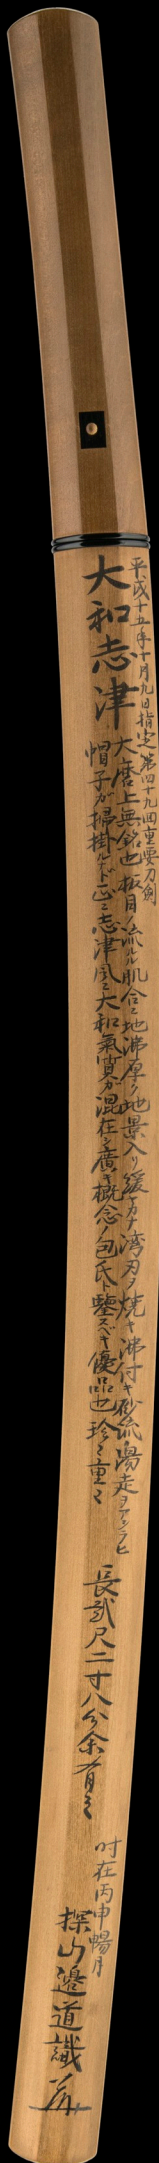 平成十五年十月九日指定第四十九回重要刀剣
大和志津
大磨上無銘也板目ノ流ルル肌合ニ地沸厚ク地景入リ緩ヤカナ湾刃ヲ焼キ沸付キ砂流湯走ヲアシラヒ
帽子ガ掃掛ルナド正ニ志津風ニ大和氣質ガ混在シ廣キ概念ノ包氏ト鑒スベキ優品也珍々重々
長貳尺二寸八分余有之
时在丙申暢月
探山邉道識